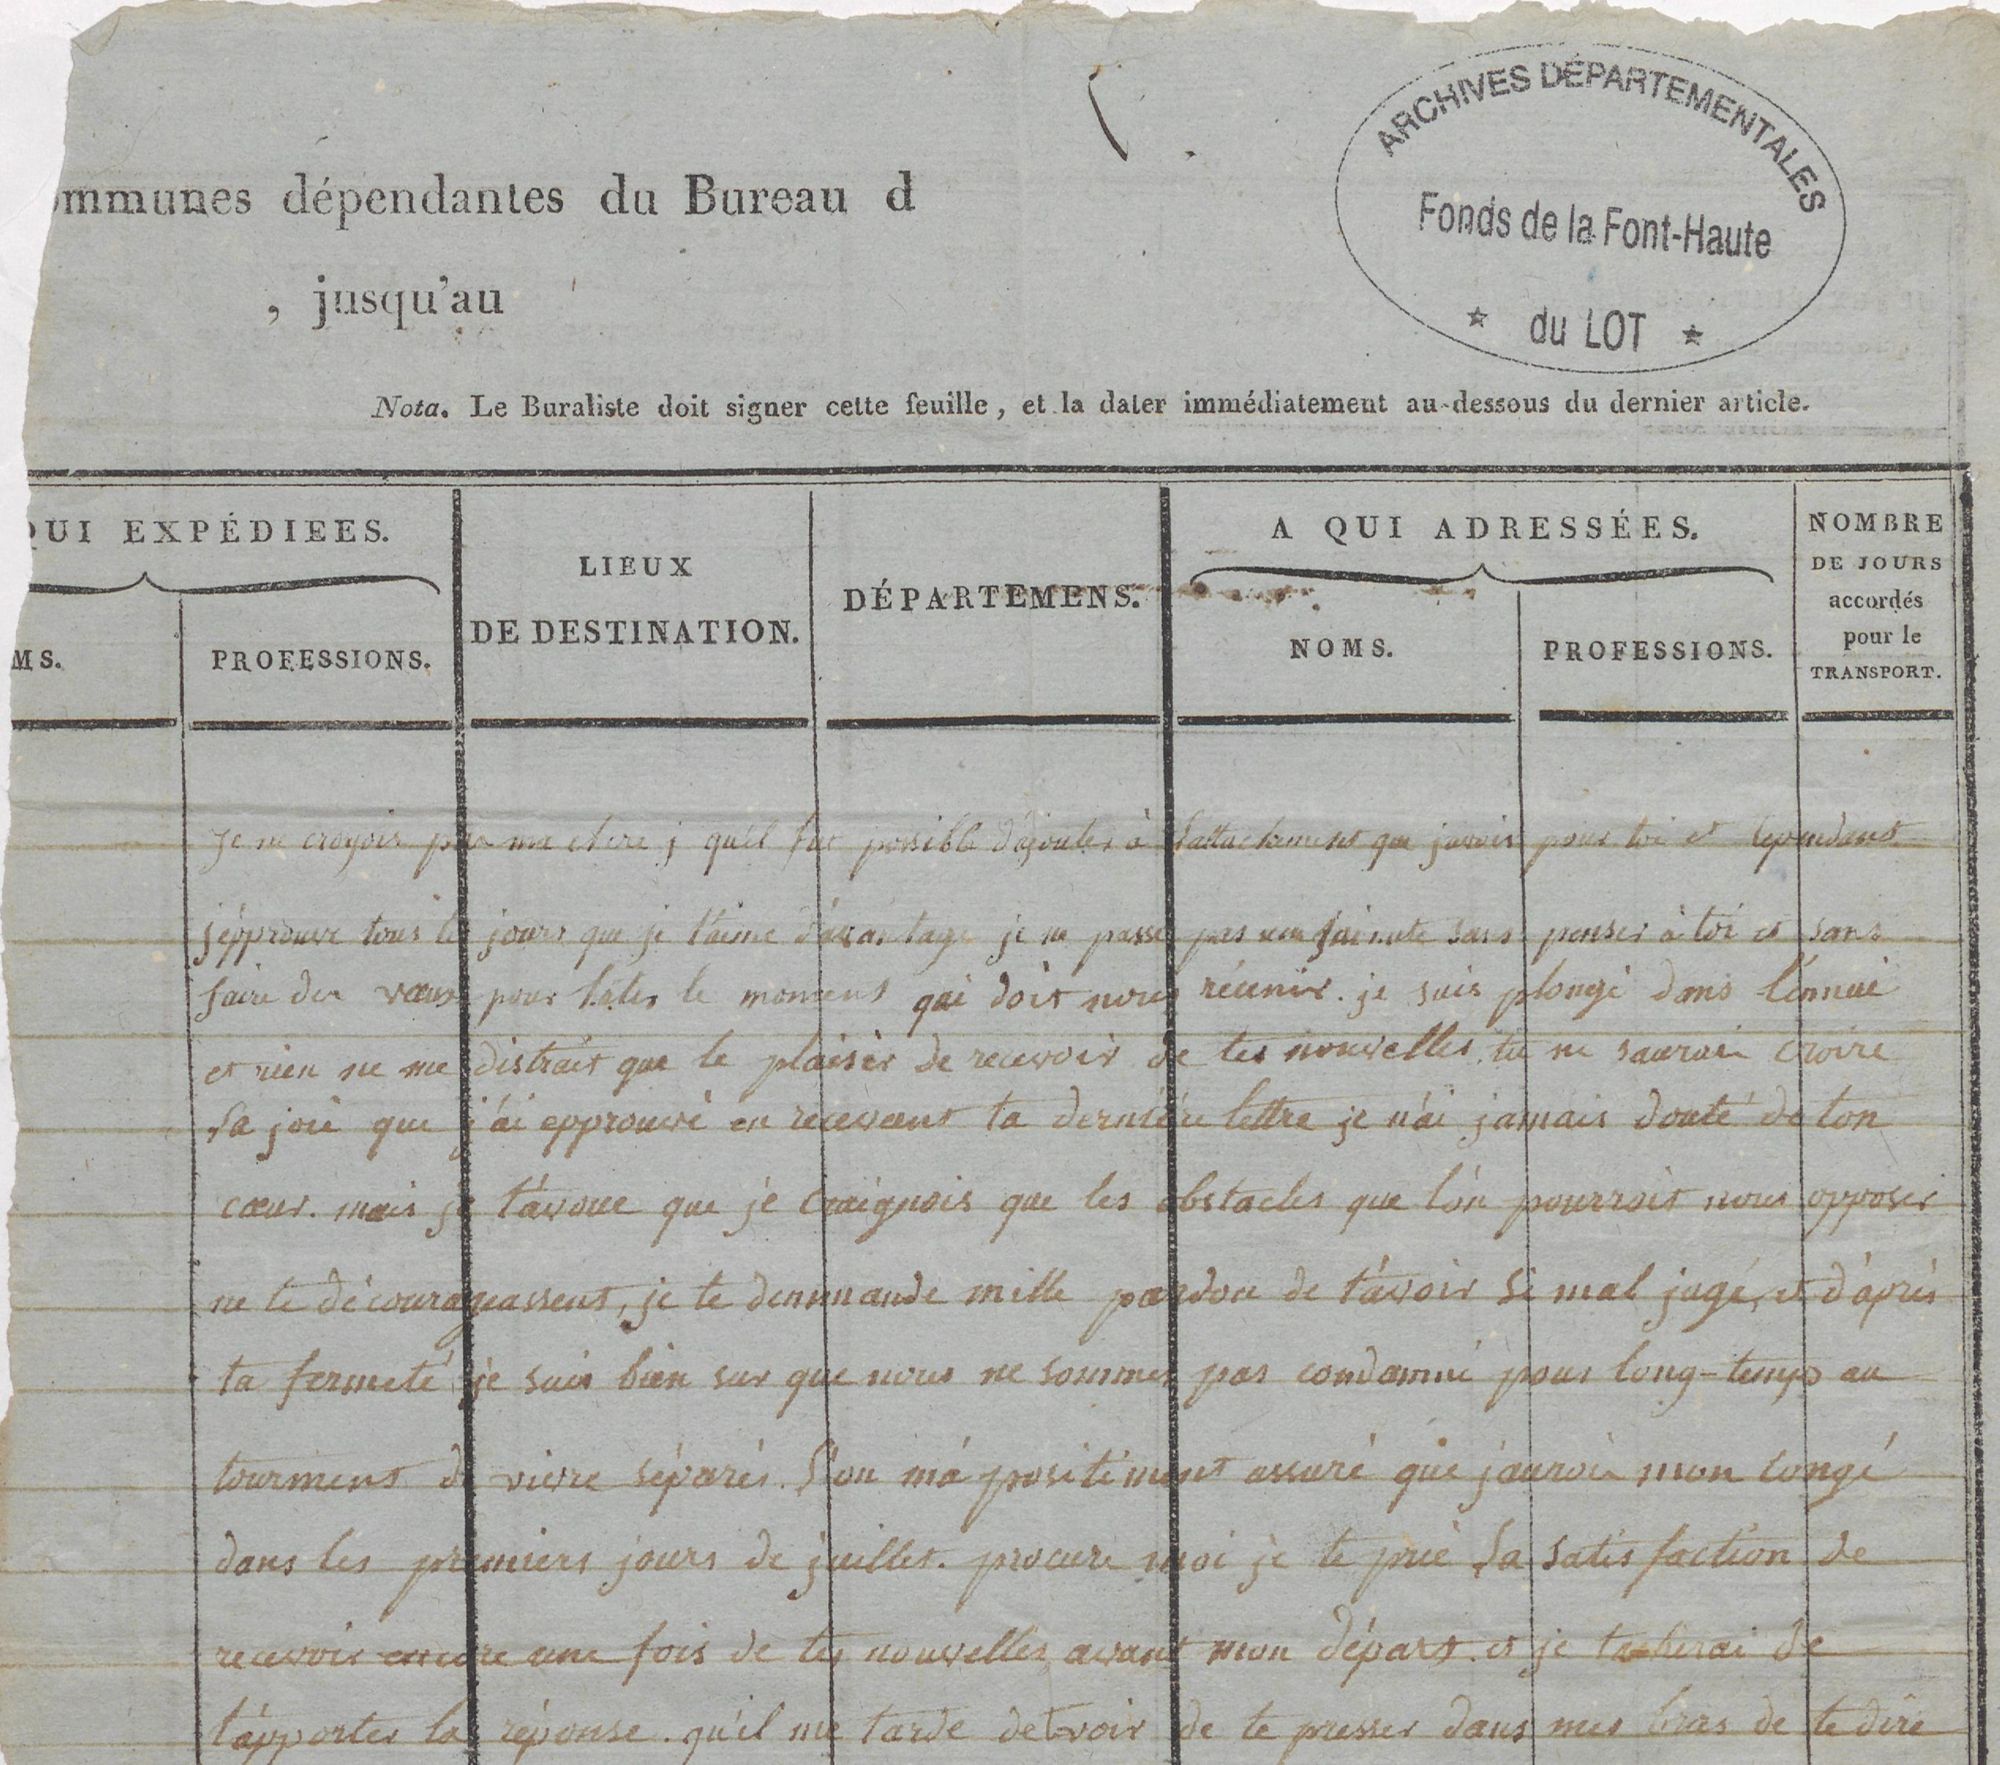 ommunes dépendantes du Bureau d
, jusqu'au
ARCHIVES DÉPARTEMENTALES
Fonds de la Font-Haute
* du LOT *
Nota. Le Buraliste doit signer cette feuille, et la dater immédiatement au-dessous du dernier article.
QUI EXPÉDIEES.
MS.
PROFESSIONS.
LIEUX
DE DESTINATION.
DÉPARTEMENS.
A QUI ADRESSÉES.
NOMS.
PROFESSIONS.
NOMBRE
DE JOURS
accordés
pour le
TRANSPORT.
je ne croyois pas ma chere j qu'il fut possible d'ajouter à l'attachement que j'avois pour toi et cependant
j'épprouve tous les jours que je t'aime d'avantage je ne passe pas une minute sans penser à toi et sans
faire des vœux pour hater le moment qui doit nous réunir. je suis plongé dans l'énnui
et rien ne me distrait que le plaisir de recevoir de tes nouvelles. tu ne saurois croire
la joie que j'ai épprouvé en recevant ta derniére lettre je n'ai jamais douté de ton
cœur. mais je t'avoue que je craignois que les obstacles que l'ón pourroit nous opposer
ne te décourageassent, je te demmande mille pardon de t'ávoir si mal jugé, et d'áprés
ta fermeté je suis bien sur que nous ne sommes pas condamné pour long-temps au
tourment de vivre séparés. l'on m'á positiment assuré que j'aurois mon congé
dans les premiers jours de juillet. procure moi je te prie la satisfaction de
recevoir encore une fois de tes nouvelles avant mon départ. et je tacherai de
t'ápporter la réponse. qu'il me tarde de te voir de te presser dans mes bras de te dire